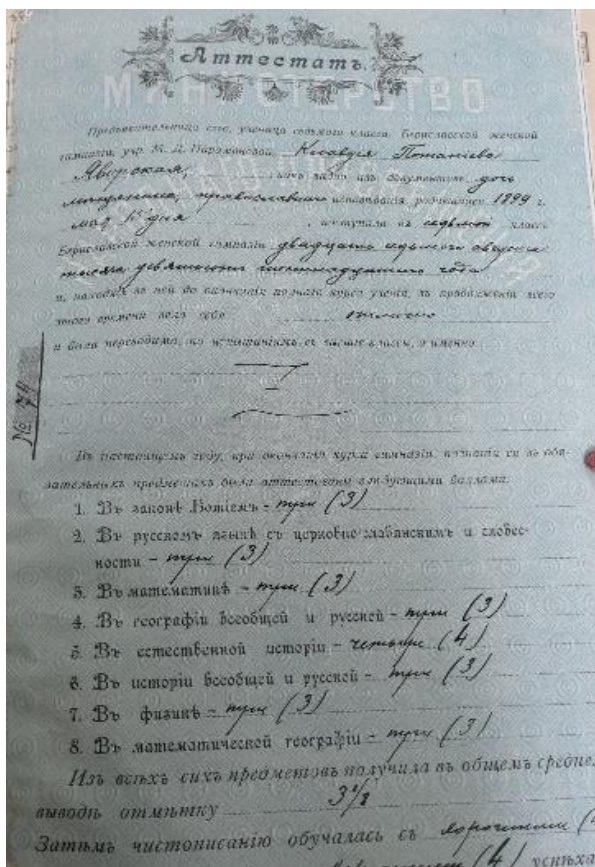 Аттестатъ.
МИНИСТЕРСТВО
Предъявительница сего, ученица седьмого класса Бориславской женской
гимназіи, учр. М. Д. Парамоновой, Клавдія
Яворская, какъ видно изъ документовъ дочь
мѣщанина, православнаго исповѣданія, родившаяся 1899 г.
мая 15 дня, поступила въ седьмой классъ
Бориславской женской гимназіи двадцать седьмого августа
тысяча девятьсотъ года
и, находясь въ ней до окончанія полнаго курса ученія, въ продолженіи всего
этого времени вела себя отлично
и была переводима, по испытаніямъ, въ высшіе классы, а именно:
№ 74
Въ настоящемъ году, при окончаніи курса гимназіи, познанія ея въ обя-
зательныхъ предметахъ были аттестованы слѣдующими баллами:
1. Въ законѣ Божіемъ - три (3)
2. Въ русскомъ языкѣ съ церковно-славянскимъ и словес-
ности - три (3)
3. Въ математикѣ - три (3)
4. Въ географіи всеобщей и русской - три (3)
5. Въ естественной исторіи - четыре (4)
6. Въ исторіи всеобщей и русской - три (3)
7. Въ физикѣ - три (3)
8. Въ математической географіи - три (3)
Изъ всѣхъ сихъ предметовъ получила въ общемъ среднемъ
выводѣ отмѣтку 3 1/8
Затѣмъ чистописанію обучалась съ хорошими (4
(4) успѣха